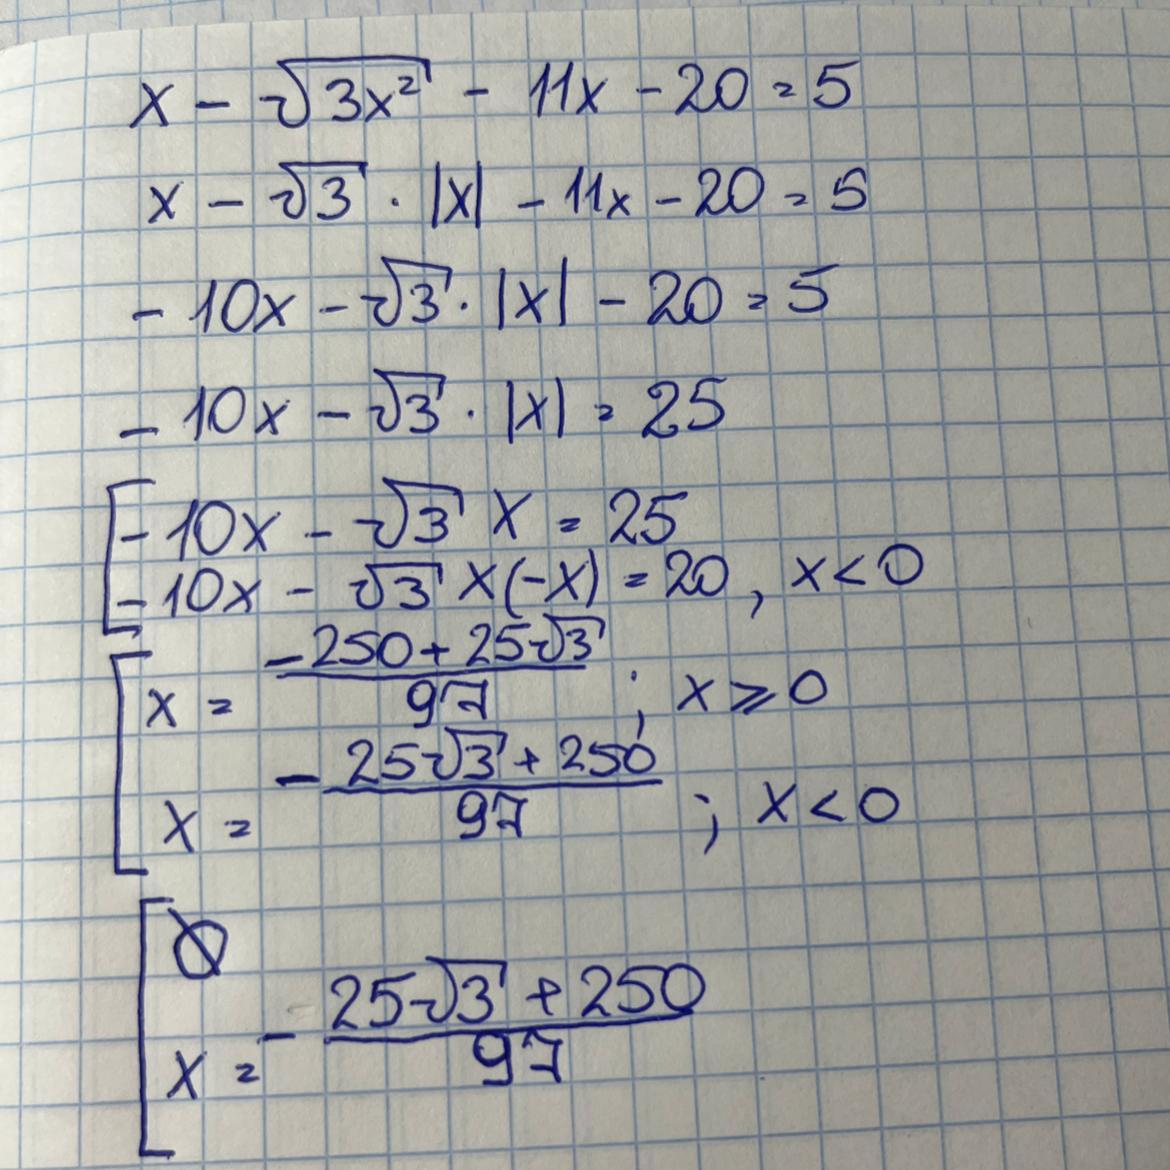 x - √3x² - 11x - 20 = 5
x - √3 · |x| - 11x - 20 = 5
- 10x - √3 · |x| - 20 = 5
- 10x - √3 · |x| = 25
[ - 10x - √3 x = 25
- 10x - √3 x(-x) = 20, x < 0
[ x = (-250 + 25√3)/97 ; x ⩾ 0
x = - (25√3 + 250)/97 ; x < 0
[ ∅
x = - (25√3 + 250)/97